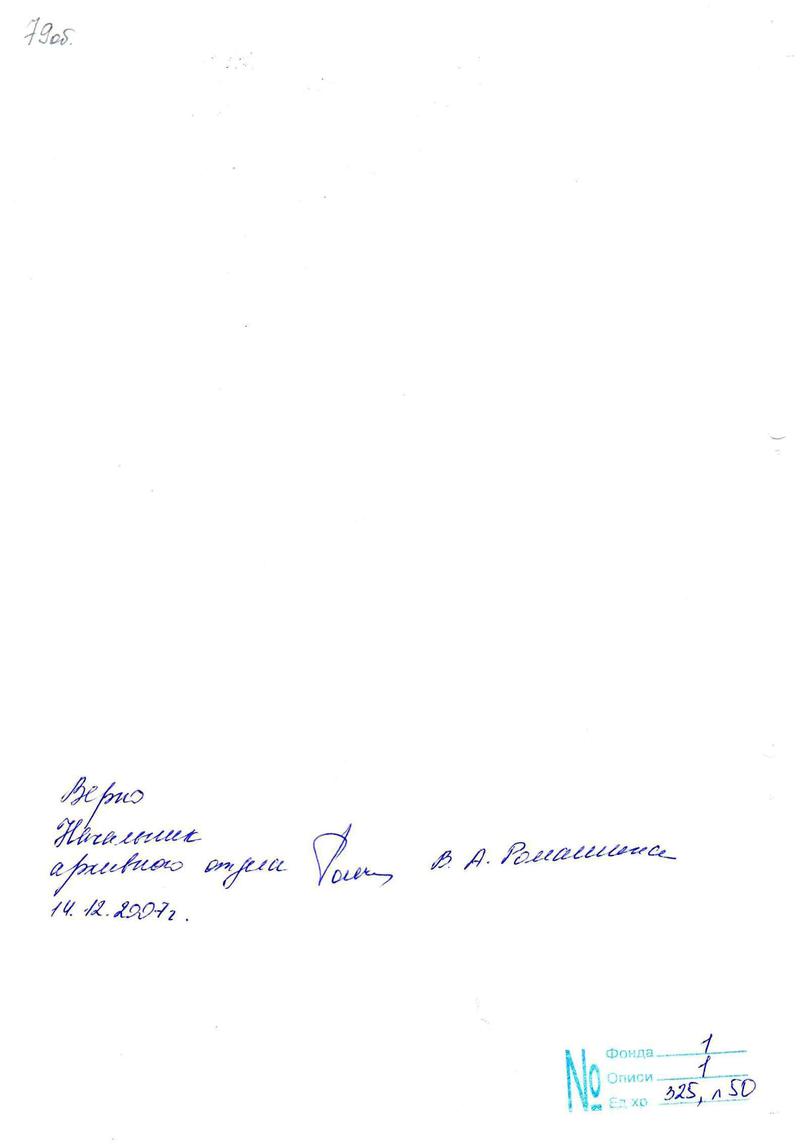 79об.
Верно
Начальник
архивного отдела В. А. Ромашкина
14.12.2007г.
№ Фонда 1
Описи 1
Ед хр 325, л 50